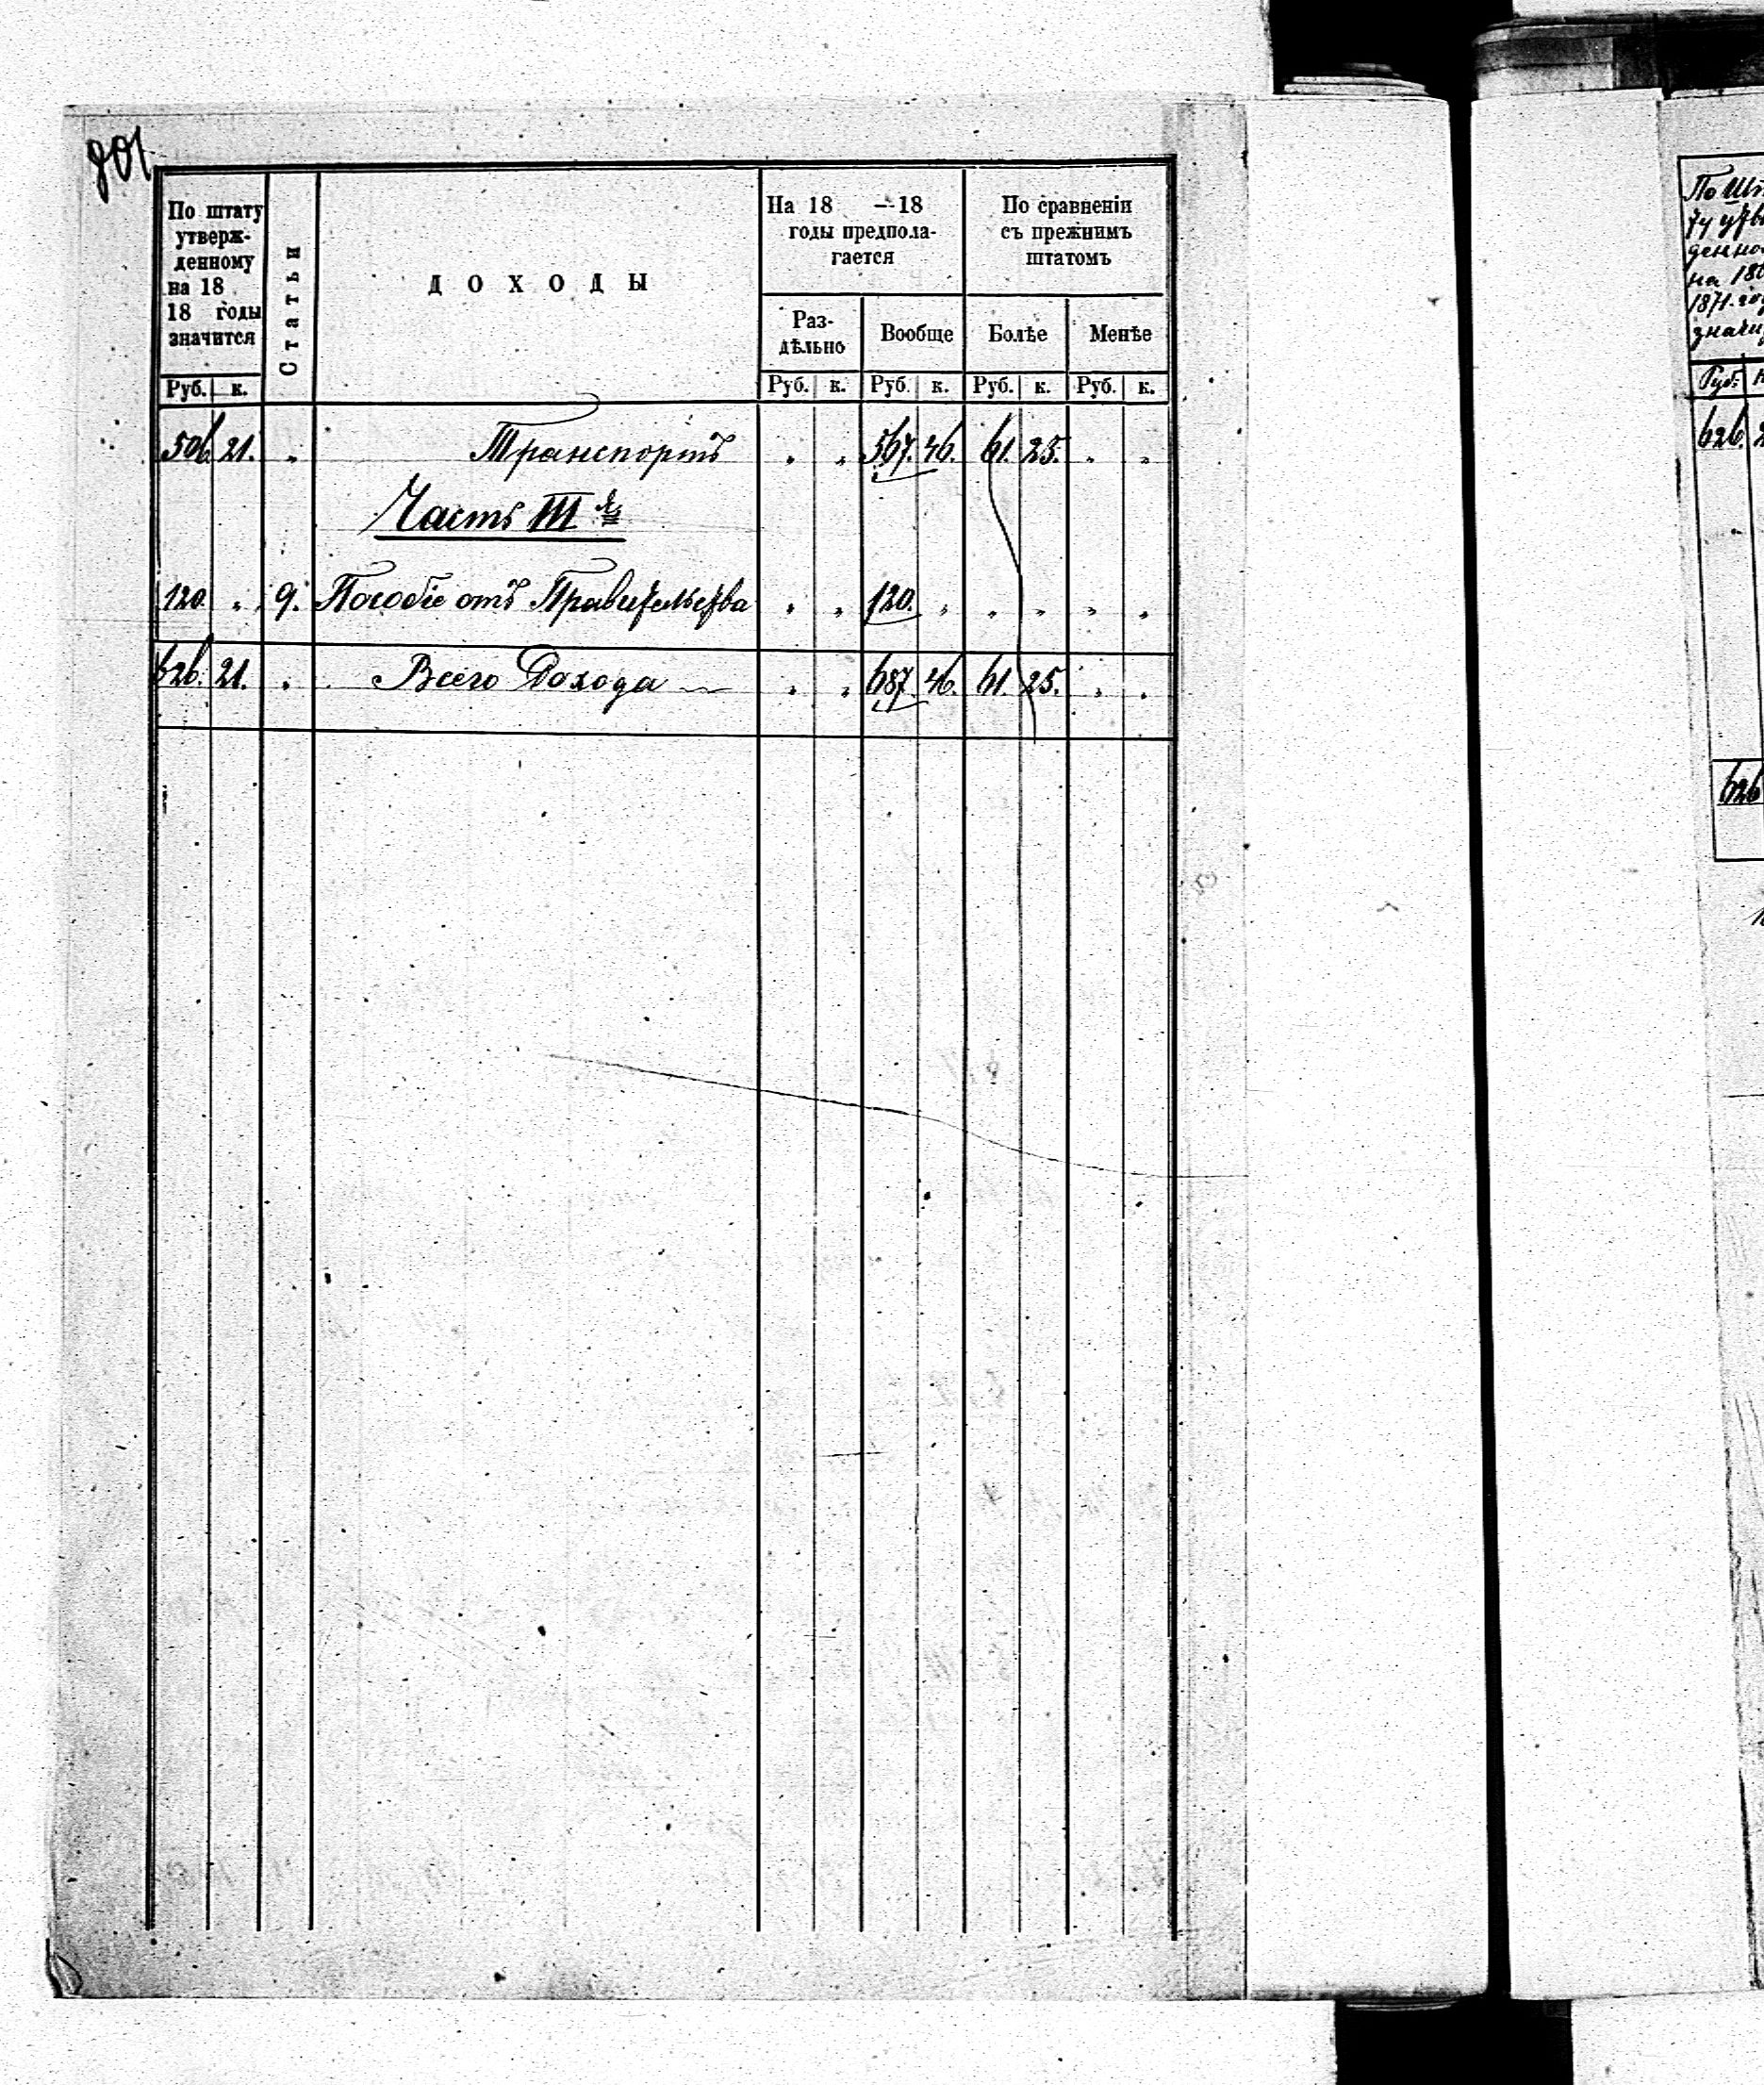 801
По штату
утверж-
денному
на 18
18 годы
значится
Статьи
ДОХОДЫ
На 18 — 18
годы предпола-
гается
По сравненіи
съ прежнимъ
штатомъ
Раз-
дѣльно
Вообще
Болѣе
Менѣе
Руб. к. Руб. к. Руб. к. Руб. к. Руб. к.
506. 21. „ Транспортъ „ „ 567. 46. 61. 25. „ „
Часть III я
120. „ 9. Пособіе отъ Правительства „ „ 120. „ „ „ „ „
626. 21. „ Всего Дохода „ „ 687. 46. 61. 25. „ „
По
на
1871.
Руб.
626.
626